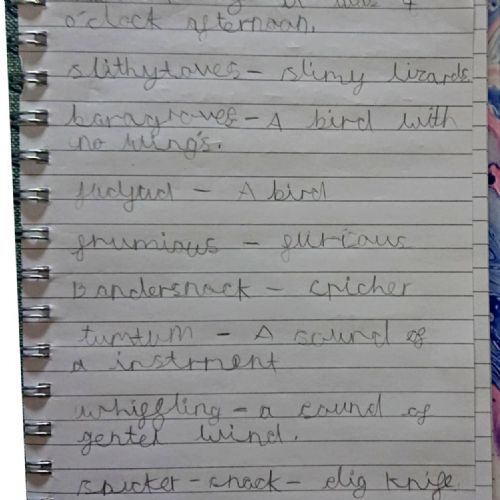 o'clock afternoon.
slithytoves - slimy lizards
baragroves - A bird with
no wings.
jubjub - A bird
frumious - furious
Bandersnack - cricher
tumtum - A sound of
a instrment
whiffling - a sound of
gentel wind.
snicker-snack - dig knife